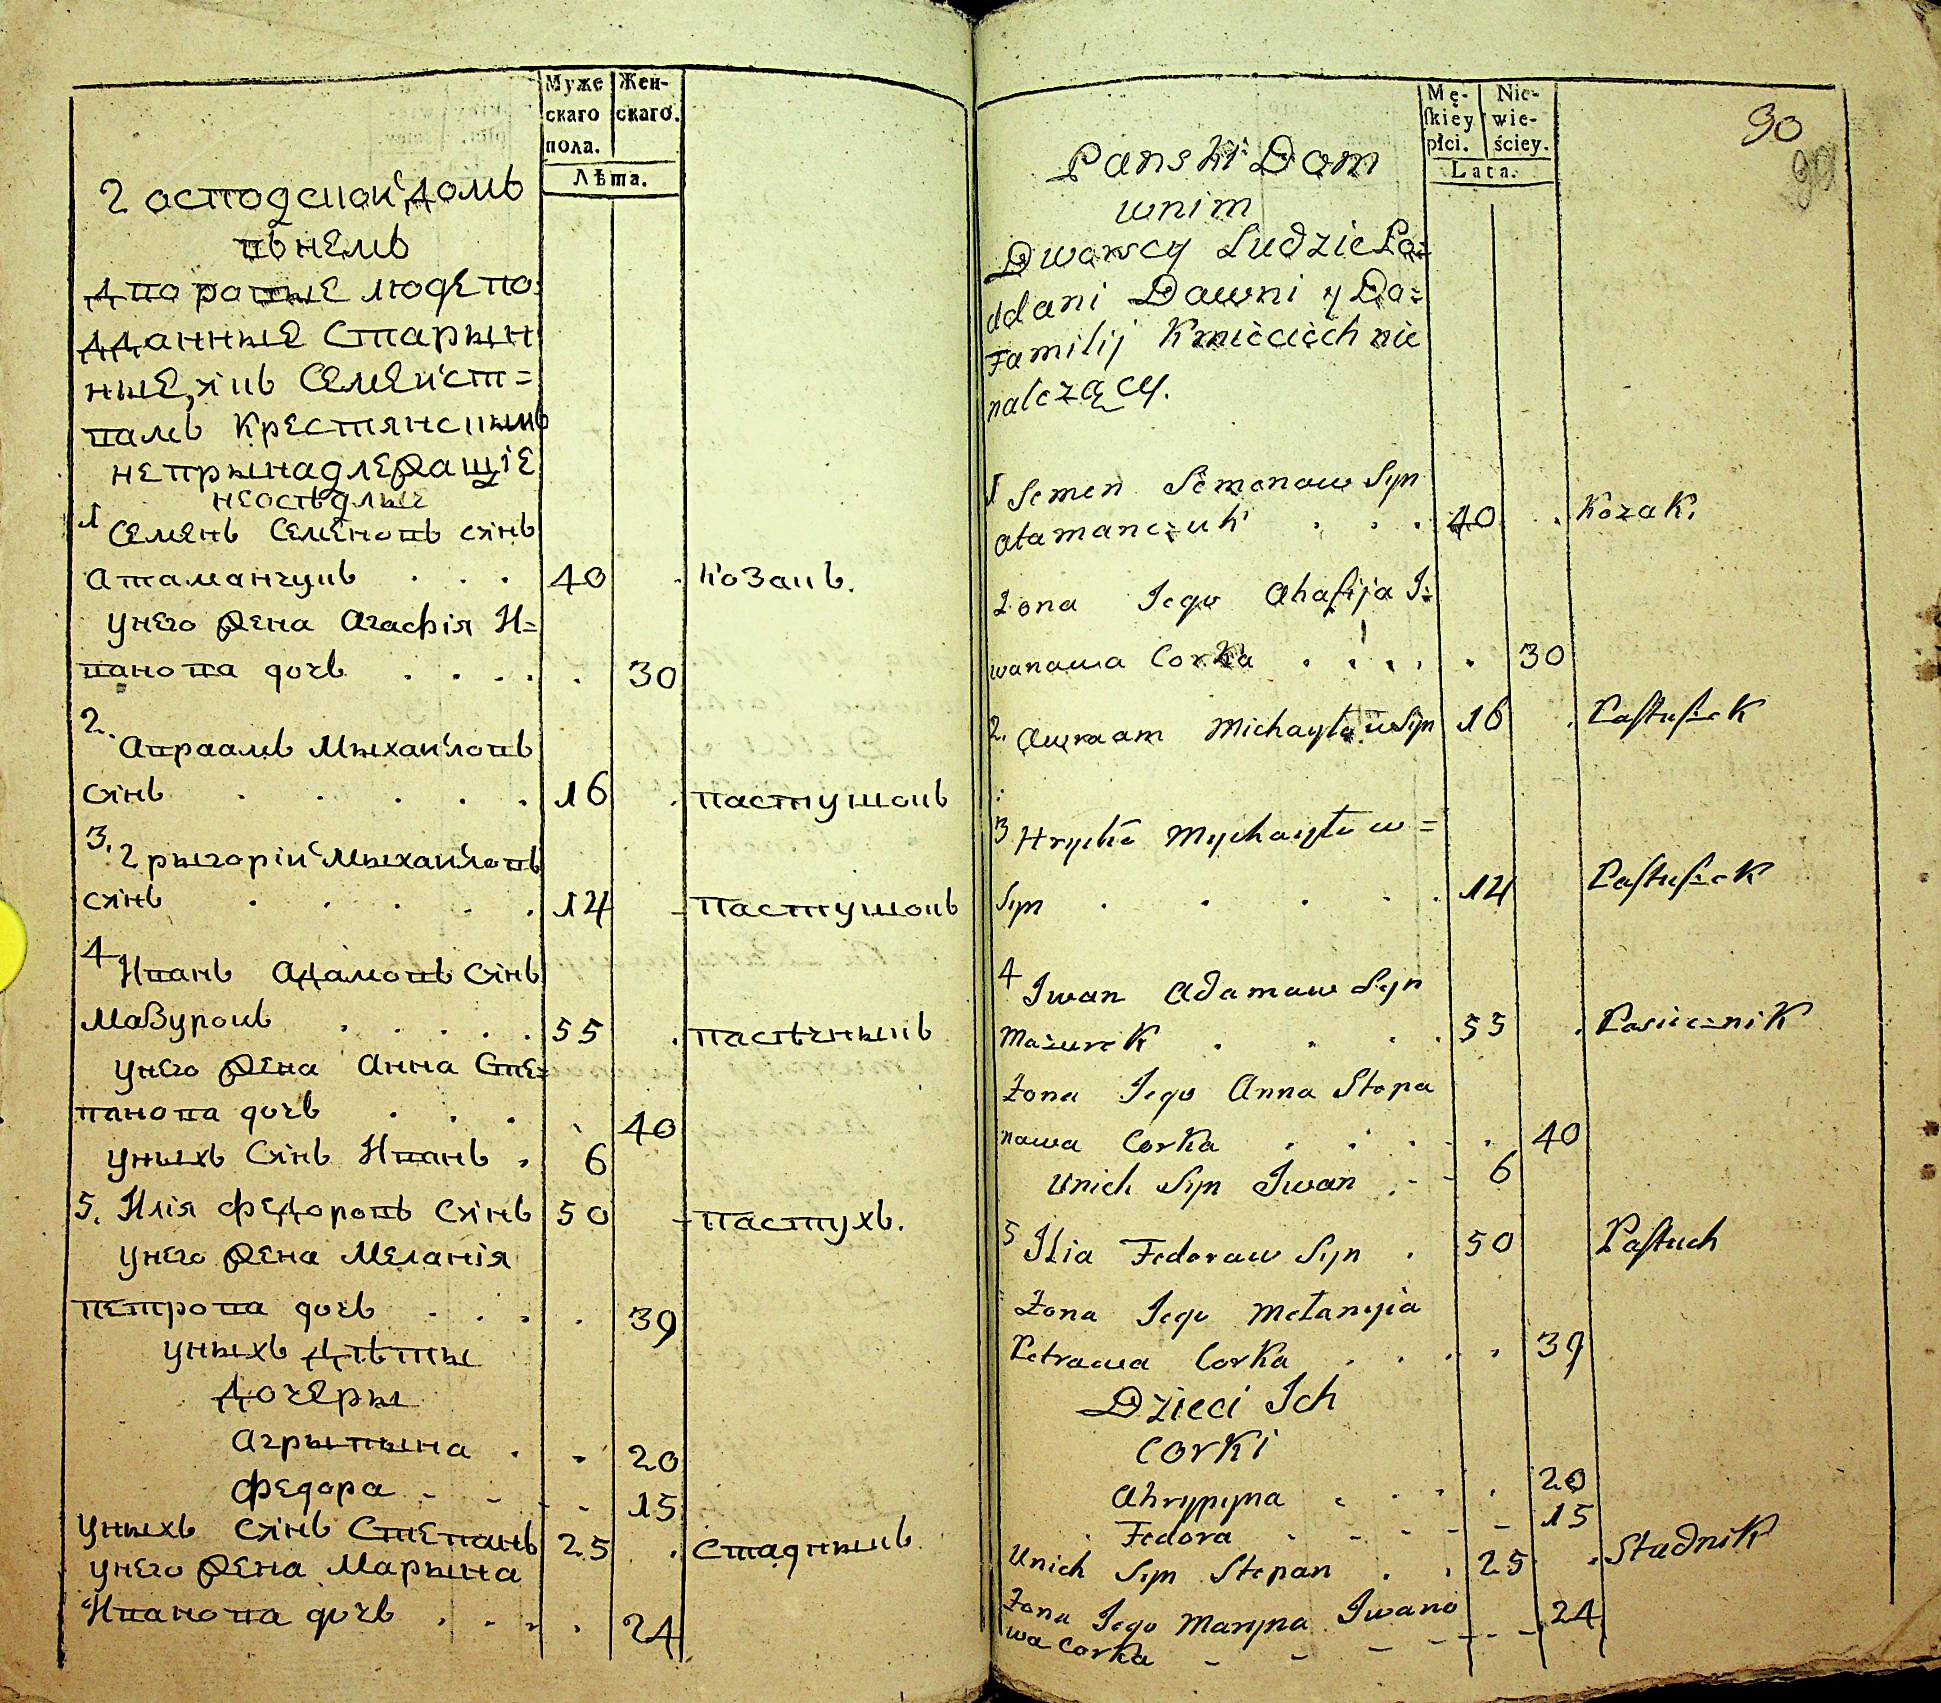 Муже
скаго
пола.
Жен-
скаго.
Лѣта.
Господской домъ
въ немъ
Дворовые люде по:
дданные Старын
ные, якъ Семейст=
вамъ Крестянскымъ
непрынадлежащіе
неосѣдлые
1 Семенъ Семеновъ сынъ
Атаманчукъ . . . 40 . козакъ.
унего жена Агафія И=
ванова дочь . . . . . 30
2. Авраамъ Мыхайловъ
сынъ . . . . . 16 . пастушокъ
3. Грыгорій Мыхайловъ
сынъ . . . . . 14 - пастушокъ
4 Иванъ Адамовъ Сынъ
Мазурокъ . . . . . 55 . пасѣчныкъ
унего жена Анна Сте=
панова дочь . . . . . 40
уныхъ Сынъ Иванъ . 6
5. Илія Федоровъ Сынъ 50 - пастухъ.
унего жена Меланія
петрова дочь . . . . 39
уныхъ Дѣты
Дочеры
Агрыпына . . 20
Федора - - - - 15
уныхъ сынъ Степанъ 25 . стадныкъ
унего жена Марына
Иванова дочь . . . . 24
Mę-
skiey
płci.
Nie-
wie-
ściey.
Lata.
90
90
Panski Dom
wnim
Dworscy Ludzie Po=
ddani Dawni y Do=
Familij Kmiecich nie
nalezący.
1 Semen Semenow Syn
Atamanczuk . . . 40 . Kozak.
Zona Jego Ahafija I=
wanowa Corka . . . . . 30
2. Awraam Michayłow Syn 16 . Pastuszek
3 Hryćko Mychayłow=
Syn . . . . . 14 Pastuszek
4 Iwan Adamow Syn
Mazurek . . . . 55 . Pasiecznik
Zona Jego Anna Stepa
nowa Corka . . . . . 40
Unich Syn Iwan . - - 6
5 Ilia Fedorow Syn . 50 Pastuch
Zona Jego Mełanyia
Petrowa Corka . . . . 39
Dzieci Ich
Corki
Ahrypyna . . . . 20
Fedora - - - - - 15
Unich Syn Stepan . . 25 . Stadnik
Zona Jego Maryna Iwano
wa Corka - - - - - - 24